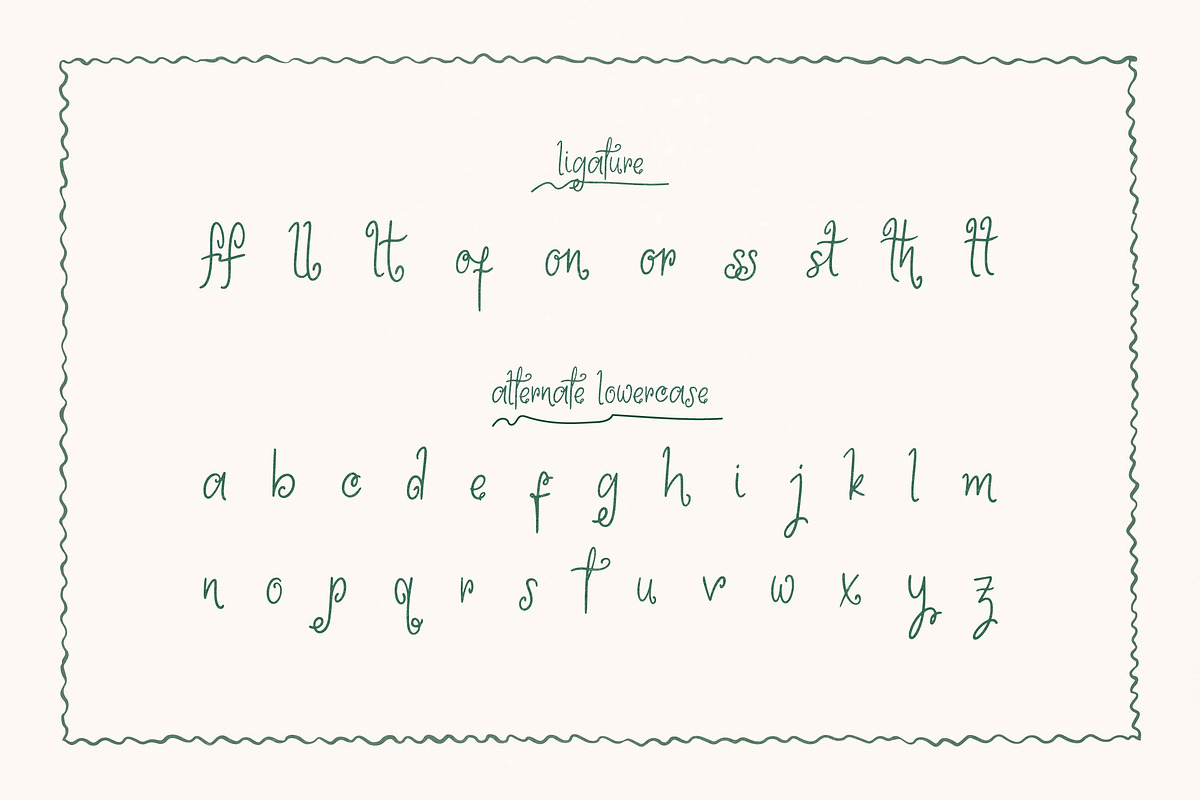 ligature
ff ll lt of on or ss st th tt
alternate lowercase
a b c d e f g h i j k l m
n o p q r s t u v w x y z